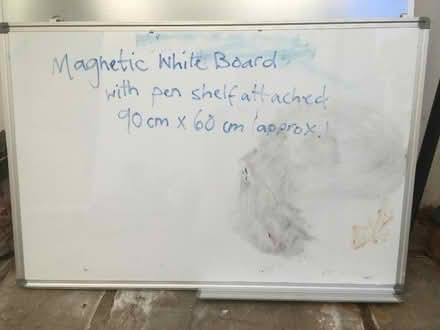 Magnetic White Board
with pen shelf attached
90cm x 60 cm (approx.)